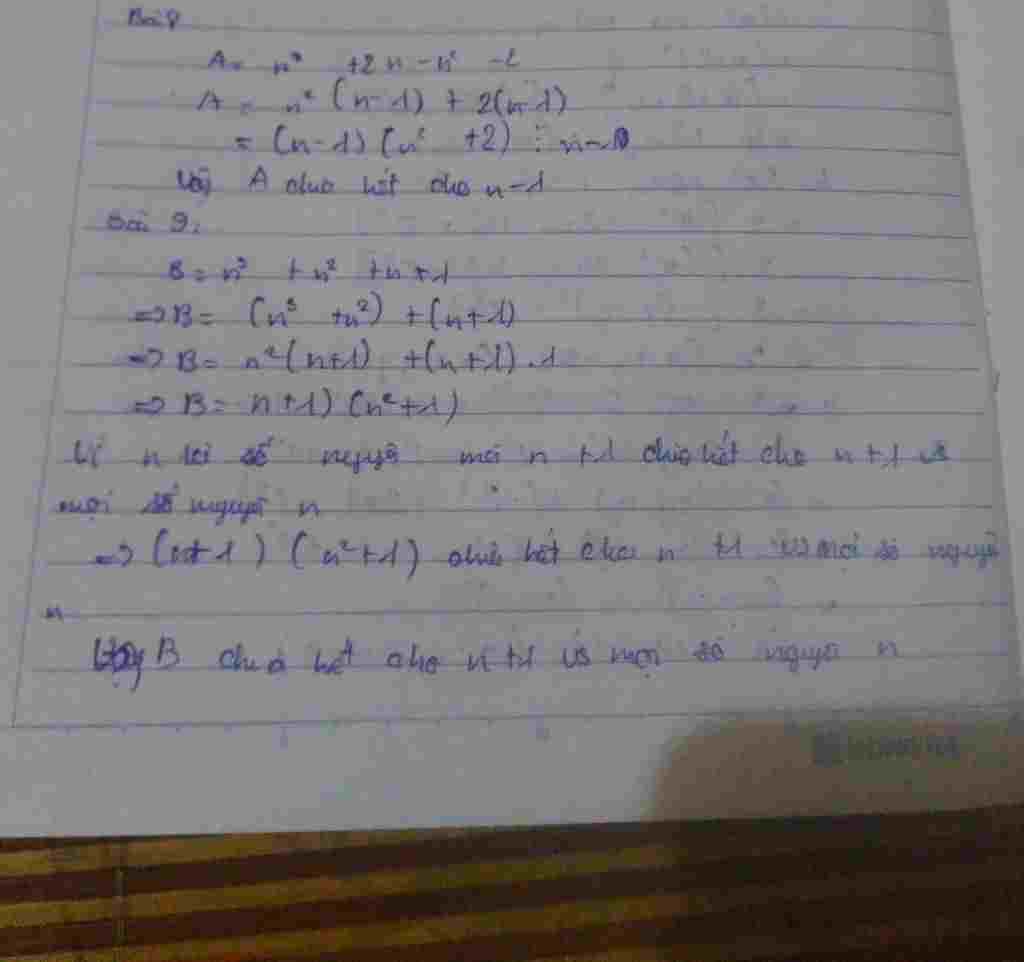 Bài 8
A = n³ +2n - n² - 2
A = n² (n-1) + 2(n-1)
= (n-1) (n² +2) ⋮ n-1
Vậy A chia hết cho n-1
Bài 9:
B = n³ + n² + n + 1
=> B = (n³ +n²) + (n+1)
=> B = n²(n+1) + (n+1).1
=> B = n+1) (n²+1)
Vì n là số nguyê mà n +1 chia hết cho n+1 với
mọi số nguyê n
=> (n+1) (n²+1) chia hết cho n +1 với mọi số nguyê
n
Vậy B chia hết cho n+1 với mọi số nguyê n